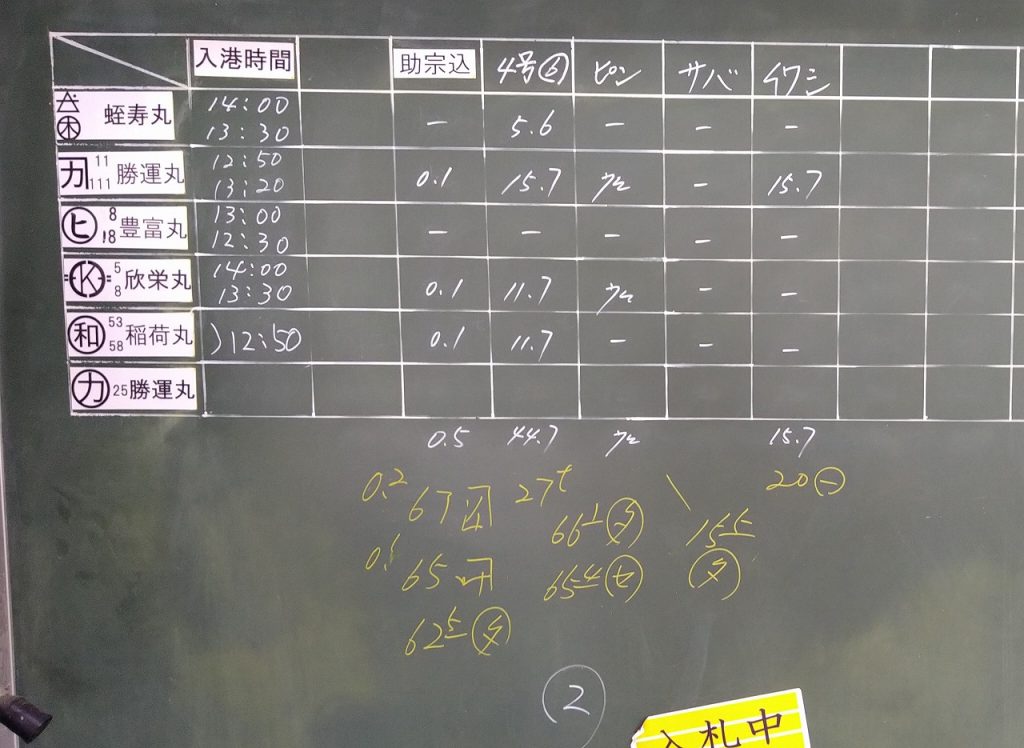 入港時間 助宗込 4号 ピン サバ イワシ
蛭寿丸 14:00 13:30 - 5.6 - - -
カ 11 111 勝運丸 12:50 13:20 0.1 15.7 - 15.7
ヒ 8 18 豊富丸 13:00 12:30 - - - - -
K 5 8 欣栄丸 14:00 13:30 0.1 11.7 - -
和 53 58 稲荷丸 12:50 0.1 11.7 - - -
カ 25 勝運丸
0.5 44.7 15.7
0.2 67 27t 20
66
65 65
62
2
入札中